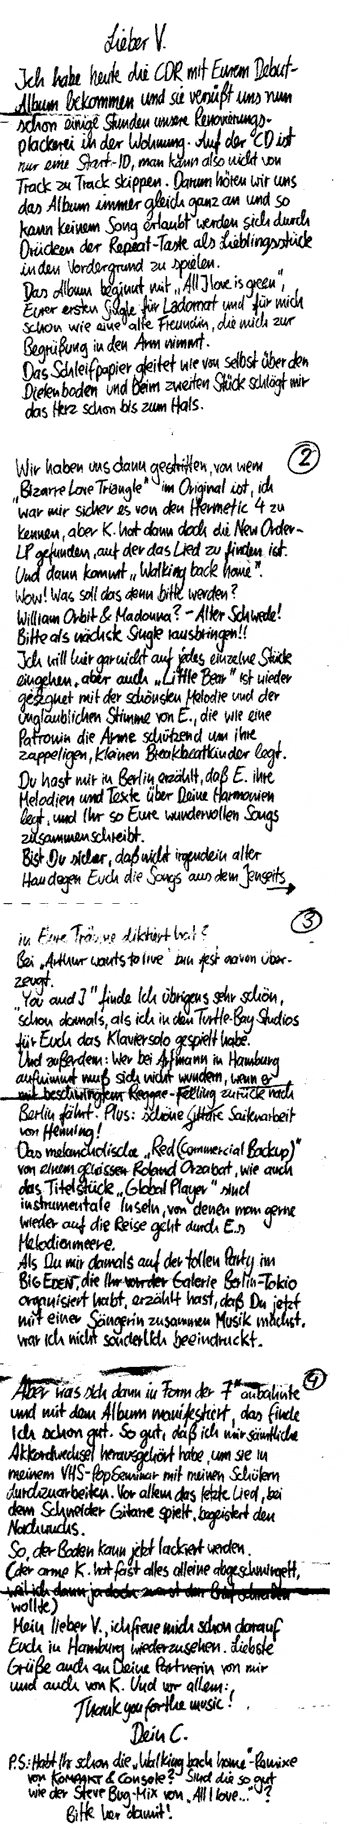 Lieber V.
Ich habe heute die CDR mit Eurem Debut-
Album bekommen und sie versüßt uns nun
schon einige Stunden unsere Renovierungs-
plackerei in der Wohnung. Auf der CD ist
nur eine Start-ID, man kann also nicht von
Track zu Track skippen. Darum hören wir uns
das Album immer gleich ganz an und so
kann keinem Song erlaubt werden sich durch
Drücken der Repeat-Taste als Lieblingsstück
in den Vordergrund zu spielen.
Das Album beginnt mit „All I love is green",
Eurer ersten Single für Ladomat und für mich
schon wie eine alte Freundin, die mich zur
Begrüßung in den Arm nimmt.
Das Schleifpapier gleitet wie von selbst über den
Dielenboden und beim zweiten Stück schlägt mir
das Herz schon bis zum Hals.
2
Wir haben uns dann gestritten, von wem
„Bizarre Love Triangle" im Original ist, ich
war mir sicher es von den Hermetic 4 zu
kennen, aber K. hat dann doch die New Order-
LP gefunden, auf der das Lied zu finden ist.
Und dann kommt „Walking back home".
Wow! Was soll das denn bitte werden?
William Orbit & Madonna? - Alter Schwede!
Bitte als nächste Single rausbringen!!
Ich will hier garnicht auf jedes einzelne Stück
eingehen, aber auch „Little Bear" ist wieder
gesegnet mit der schönsten Melodie und der
unglaublichen Stimme von E., die wie eine
Patronin die Arme schützend um ihre
zappeligen, kleinen Breakbeatkinder legt.
Du hast mir in Berlin erzählt, daß E. ihre
Melodien und Texte über Deine Harmonien
legt, und Ihr so Eure wundervollen Songs
zusammenschreibt.
Bist Du sicher, daß nicht irgendein alter
Haudegen Euch die Songs aus dem Jenseits
3
in Eure Träume diktiert hat?
Bei „Arthur wants to live" bin fest davon über-
zeugt.
"You and I" finde Ich übrigens sehr schön,
schon damals, als ich in den Turtle-Bay Studios
für Euch das Klaviersolo gespielt habe.
Und außerdem: Wer bei Artmann in Hamburg
aufnimmt muß sich nicht wundern, wenn er
mit beschwingtem Reggae-Feeling zurück nach
Berlin fährt. Plus: schöne Gitarre Saitenarbeit
von Henning!
Das melancholische „Red (Commercial Backup)"
von einem gewissen Roland Orzabat, wie auch
das Titelstück „Global Player" sind
instrumentale Inseln, von denen man gerne
wieder auf die Reise geht durch E.s
Melodienmeere.
Als Du mir damals auf der tollen Party im
BIG EDEN, die Ihr von der Galerie Berlin-Tokio
organisiert habt, erzählt hast, daß Du jetzt
mit einer Sängerin zusammen Musik machst,
war ich nicht sonderlich beeindruckt.
4
Aber was sich dann in Form der 7" anbahnte
und mit dem Album manifestiert, das finde
Ich schon gut. So gut, daß ich mir sämtliche
Akkordwechsel herausgehört habe, um sie in
meinem VHS-PopSeminar mit meinen Schülern
durchzuarbeiten. Vor allem das letzte Lied, bei
dem Schneider Gitarre spielt, begeistert den
Nachwuchs.
So, der Boden kann jetzt lackiert werden.
(der arme K. hat fast alles alleine abgeschmirgelt,
weil ich dann ja doch zuerst den Brief schreiben
wollte)
Mein lieber V., ich freue mich schon darauf
Euch in Hamburg wiederzusehen. Liebste
Grüße auch an Deine Partnerin von mir
und auch von K. Und vor allem:
Thank you for the music!
Dein C.
P.S.: Habt Ihr schon die „Walking back home"-Remixe
von KOMPAKT & Console? Sind die so gut
wie der Steve Bug-Mix von „All I love..." ?
Bitte her damit!